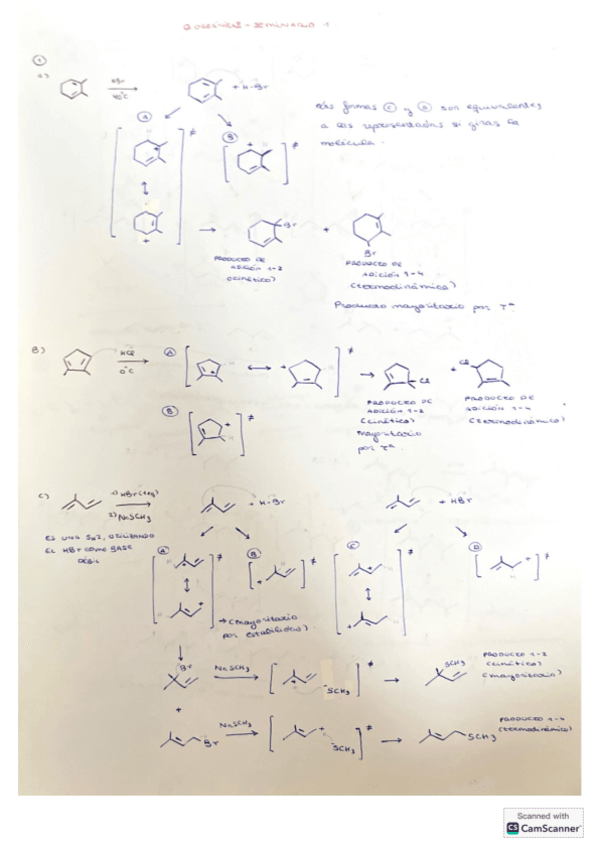 QUIMICA - SEMINARIO 1
1
a)
HBr
40°C
+ H-Br
Las formas C y D son equivalentes
a las representadas si giras la
molécula.
A
B
≠
≠
+
+
→
Br
+
Br
PRODUCTO DE
ADICIÓN 1-2
(cinético)
PRODUCTO DE
ADICIÓN 1-4
(termodinámico)
Producto mayoritario por Tª
B)
HCl
0°C
A
+
+
≠
Cl
+
Cl
PRODUCTO DE
ADICIÓN 1-2
(cinético)
mayoritario
por Tª.
PRODUCTO DE
ADICIÓN 1-4
(termodinámico)
B
+
≠
C)
1) HBr (1eq)
2) NaSCH3
+ H-Br
+ HBr
ES UNA SN2, UTILIZANDO
EL HBr COMO BASE
DÉBIL
A
B
C
D
≠
≠
≠
≠
→ (mayoritario
por estabilidad)
Br
NaSCH3
+
-SCH3
≠
SCH3
PRODUCTO 1-2
(cinético)
(mayoritario)
+
Br
NaSCH3
+
-SCH3
≠
SCH3
PRODUCTO 1-4
(termodinámico)
Scanned with
CS CamScanner